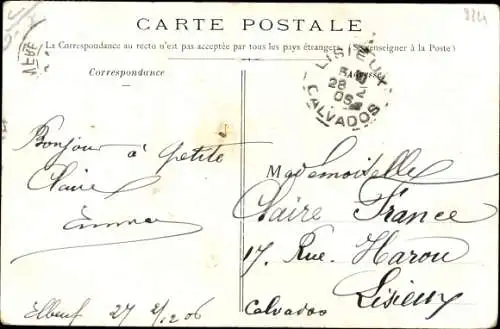 CARTE POSTALE
La Correspondance au recto n'est pas acceptée par tous les pays étrangers (Se renseigner à la Poste)
Correspondance
LISIEUX
28 2
06
CALVADOS
Bonjour à petite
Claire
Emma
Elbeuf 27 2/2 06
Mademoiselle
Claire France
17. Rue. Harou
Lisieux
Calvados